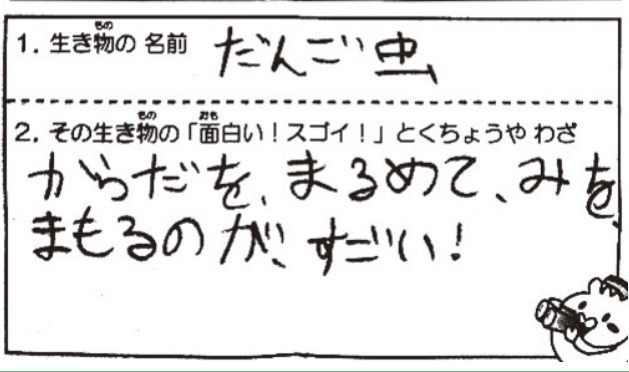 1. 生き物の名前 だんご虫
2. その生き物の「面白い！スゴイ！」とくちょうや わざ
からだを、まるめて、みを、
まもるのが、すごい！